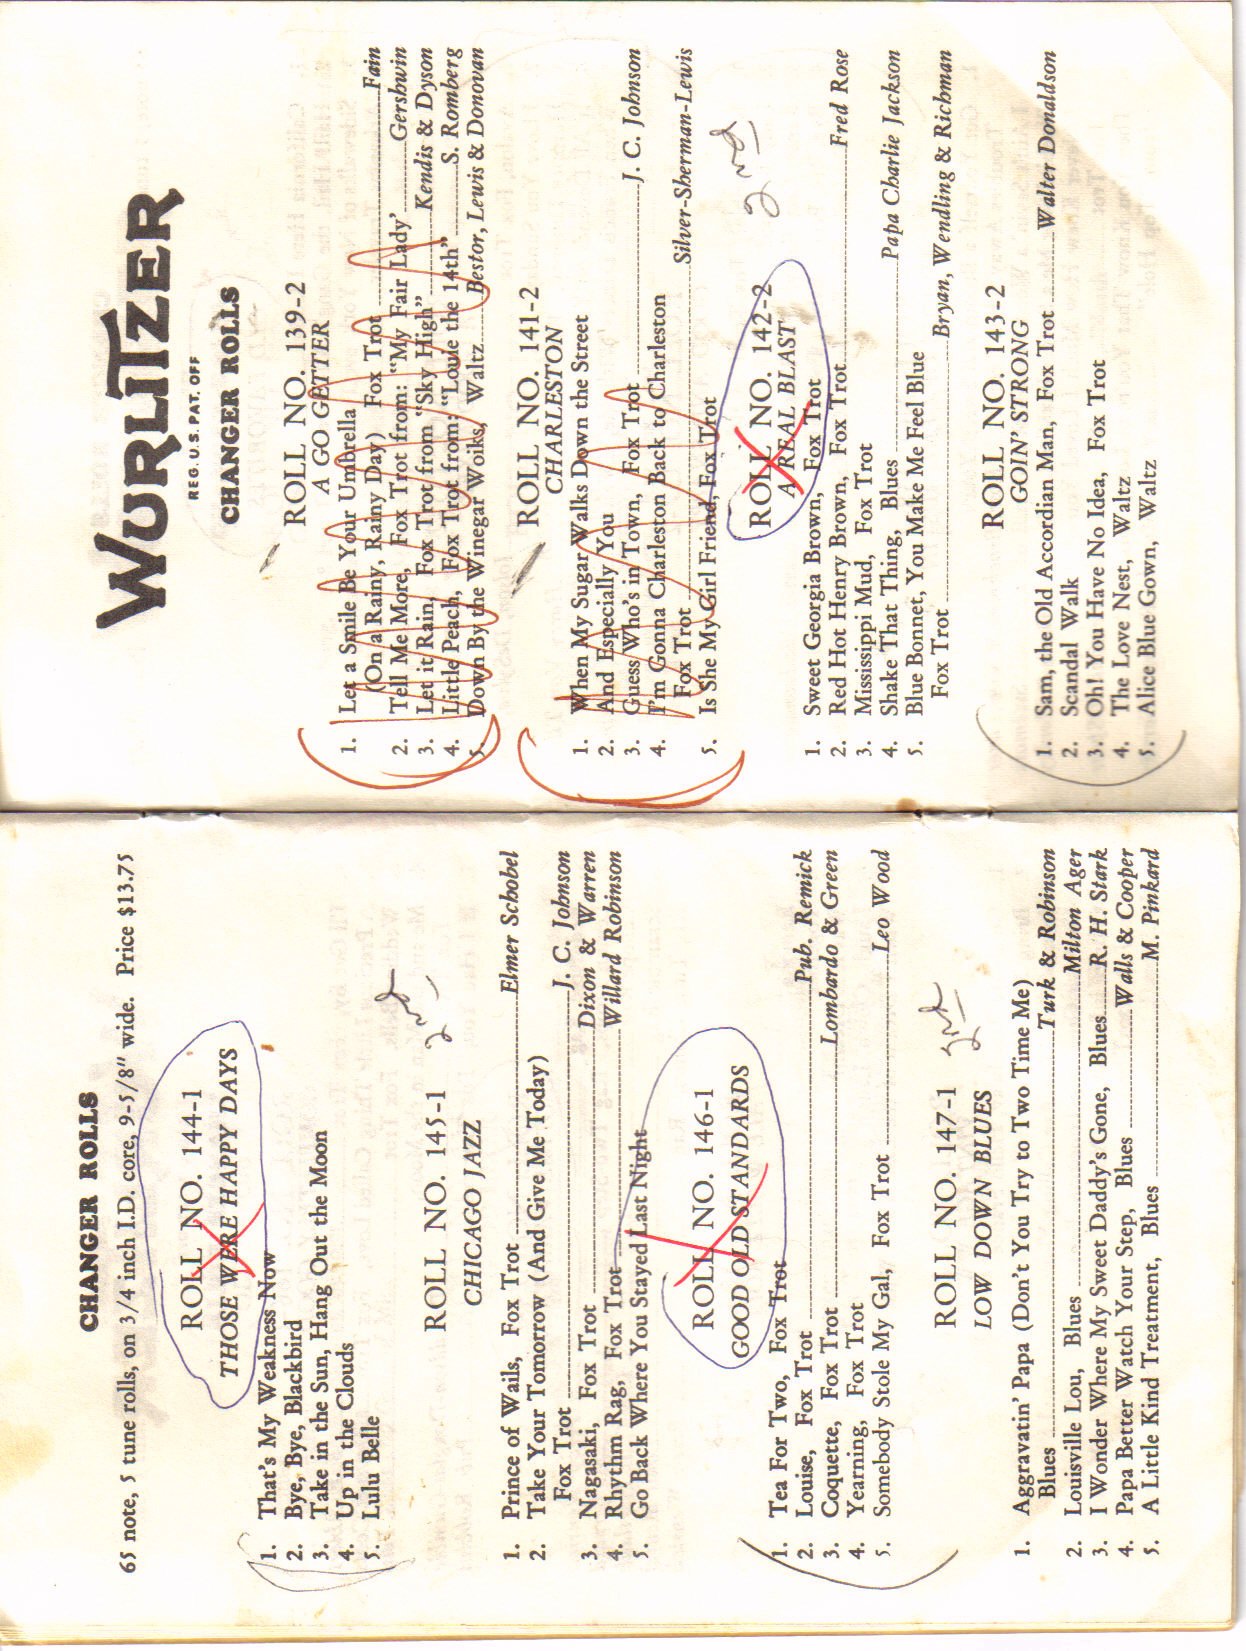 CHANGER ROLLS
65 note, 5 tune rolls, on 3/4 inch I.D. core, 9-5/8" wide. Price $13.75
ROLL NO. 144-1
THOSE WERE HAPPY DAYS
1. That's My Weakness Now
2. Bye, Bye, Blackbird
3. Take in the Sun, Hang Out the Moon
4. Up in the Clouds
5. Lulu Belle
2nd
ROLL NO. 145-1
CHICAGO JAZZ
1. Prince of Wails, Fox Trot Elmer Schobel
2. Take Your Tomorrow (And Give Me Today)
Fox Trot J. C. Johnson
3. Nagasaki, Fox Trot Dixon & Warren
4. Rhythm Rag, Fox Trot Willard Robinson
5. Go Back Where You Stayed Last Night
ROLL NO. 146-1
GOOD OLD STANDARDS
1. Tea For Two, Fox Trot
2. Louise, Fox Trot Pub. Remick
3. Coquette, Fox Trot Lombardo & Green
4. Yearning, Fox Trot
5. Somebody Stole My Gal, Fox Trot Leo Wood
2nd
ROLL NO. 147-1
LOW DOWN BLUES
1. Aggravatin' Papa (Don't You Try to Two Time Me)
Blues Turk & Robinson
2. Louisville Lou, Blues Milton Ager
3. I Wonder Where My Sweet Daddy's Gone, Blues R. H. Stark
4. Papa Better Watch Your Step, Blues Walls & Cooper
5. A Little Kind Treatment, Blues M. Pinkard
WURLITZER
REG. U.S. PAT. OFF
CHANGER ROLLS
ROLL NO. 139-2
A GO GETTER
1. Let a Smile Be Your Umbrella
(On a Rainy, Rainy Day) Fox Trot Fain
2. Tell Me More, Fox Trot from: "My Fair Lady' Gershwin
3. Let it Rain, Fox Trot from "Sky High" Kendis & Dyson
4. Little Peach, Fox Trot from: "Louie the 14th" S. Romberg
5. Down By the Winegar Woiks, Waltz Bestor, Lewis & Donovan
ROLL NO. 141-2
CHARLESTON
1. When My Sugar Walks Down the Street
2. And Especially You
3. Guess Who's in Town, Fox Trot J. C. Johnson
4. I'm Gonna Charleston Back to Charleston
Fox Trot Silver-Sherman-Lewis
5. Is She My Girl Friend, Fox Trot
2nd
ROLL NO. 142-2
A REAL BLAST
1. Sweet Georgia Brown, Fox Trot
2. Red Hot Henry Brown, Fox Trot Fred Rose
3. Mississippi Mud, Fox Trot
4. Shake That Thing, Blues Papa Charlie Jackson
5. Blue Bonnet, You Make Me Feel Blue
Fox Trot Bryan, Wendling & Richman
ROLL NO. 143-2
GOIN' STRONG
1. Sam, the Old Accordian Man, Fox Trot Walter Donaldson
2. Scandal Walk
3. Oh! You Have No Idea, Fox Trot
4. The Love Nest, Waltz
5. Alice Blue Gown, Waltz